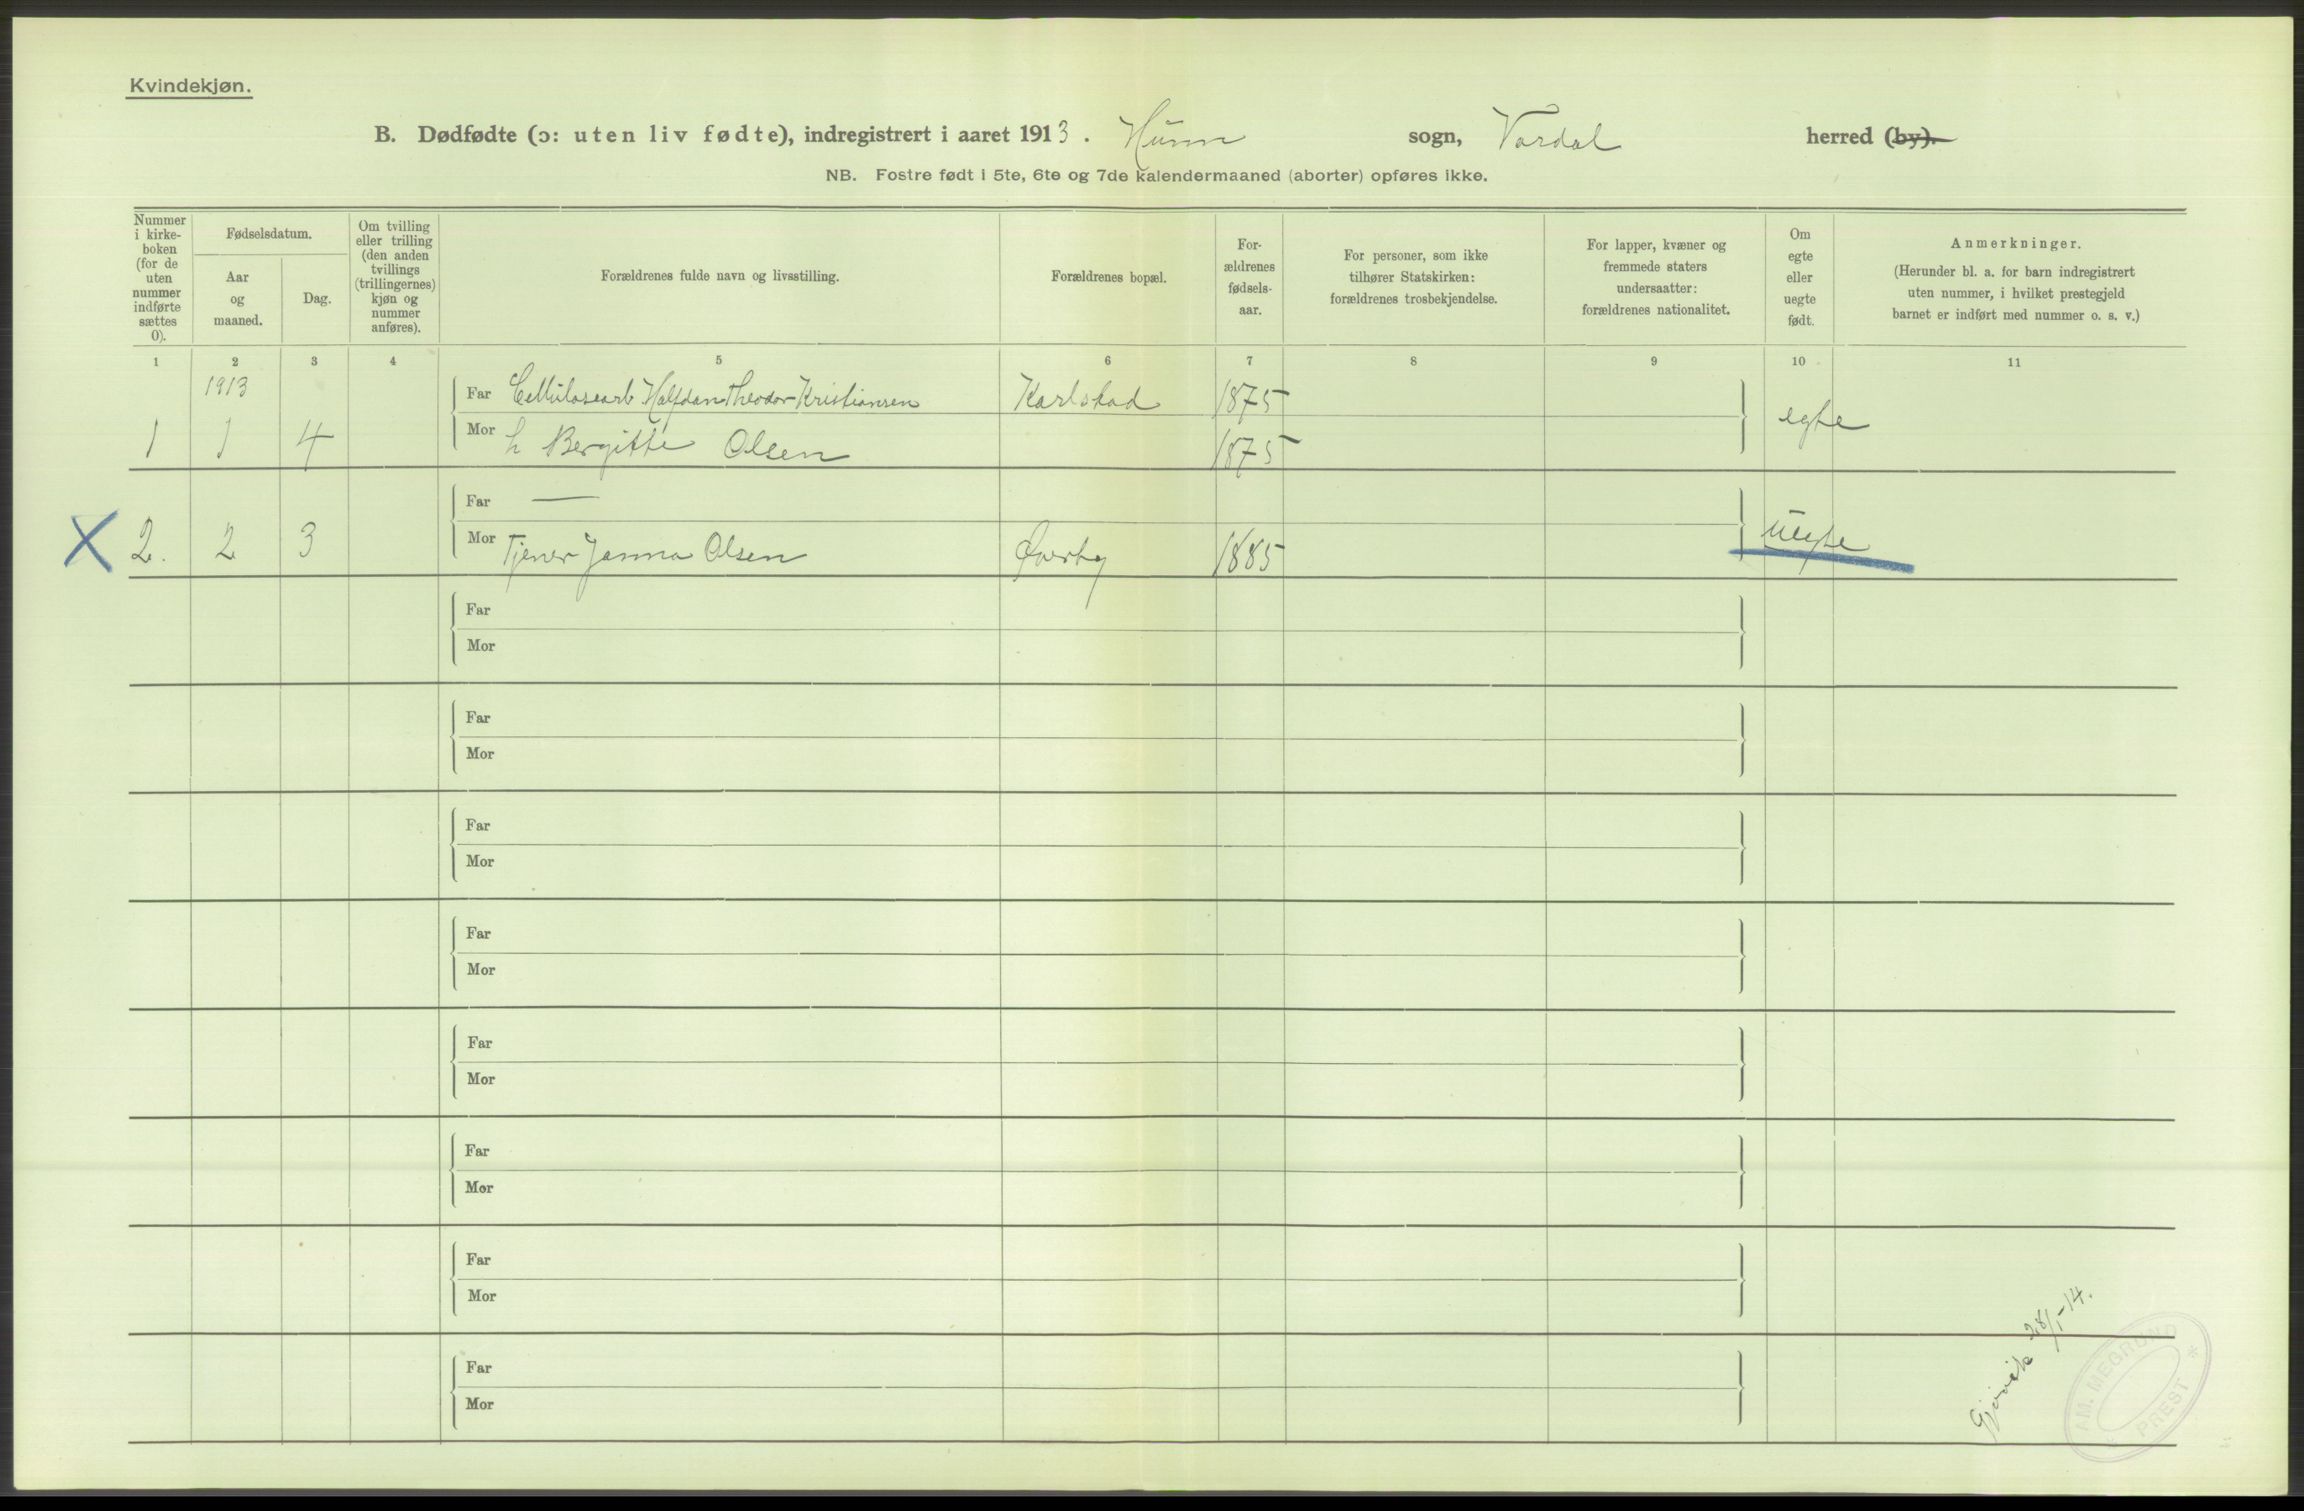 Kvindekjøn.
B. Dødfødte (ɔ: uten liv fødte), indregistrert i aaret 1913. Hunn sogn, Vardal herred (by).
NB. Fostre født i 5te, 6te og 7de kalendermaaned (aborter) opføres ikke.
Nummer i kirke-boken (for de uten nummer indførte sættes 0).
Fødselsdatum.
Aar og maaned.
Dag.
Om tvilling eller trilling (den anden tvillings (trillingernes) kjøn og nummer anføres).
Forældrenes fulde navn og livsstilling.
Forældrenes bopæl.
For-ældrenes fødsels-aar.
For personer, som ikke tilhører Statskirken: forældrenes trosbekjendelse.
For lapper, kvæner og fremmede staters undersaatter: forældrenes nationalitet.
Om egte eller uegte født.
Anmerkninger.
(Herunder bl. a. for barn indregistrert uten nummer, i hvilket prestegjeld barnet er indført med nummer o. s. v.)
1 2 3 4 5 6 7 8 9 10 11
1913
Far Cellulosearb. Halfdan Theodor Kristiansen Karlstad 1875
1 1 4 Mor h Bergitte Olsen 1875 egte
Far —
X 2. 2 3 Mor Tjener Janna Olsen Øverby 1885 uegte
Far
Mor
Far
Mor
Far
Mor
Far
Mor
Far
Mor
Far
Mor
Far
Mor
Far
Mor
Gjøvik 28/1-14.
AM. MEGRUND
PREST